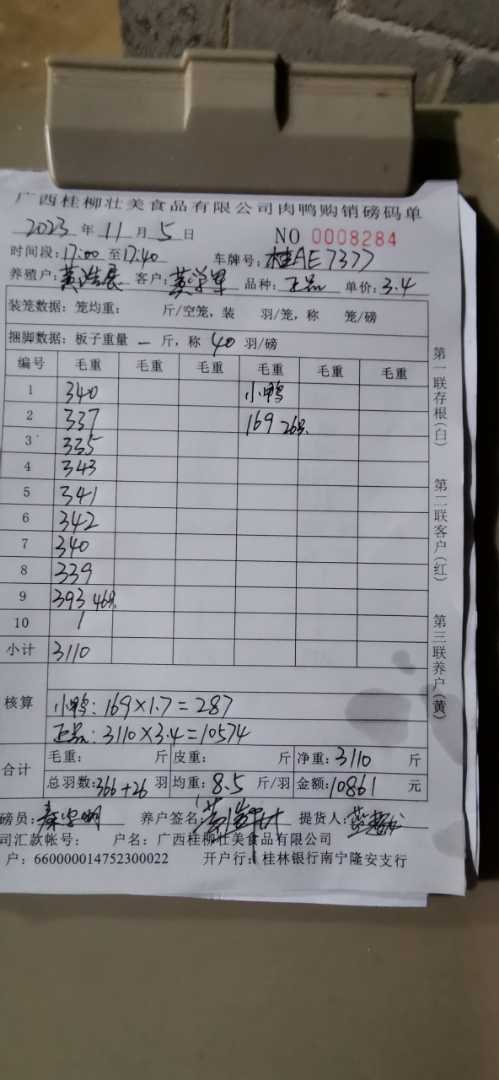 广西桂柳壮美食品有限公司肉鸭购销磅码单
2023 年 11 月 5 日 NO 0008284
时间段: 17:00 至 17:40 车牌号: 桂AE7377
养殖户: 黄 客户: 黄 品种: 正品 单价: 3.4
装笼数据: 笼均重: 斤/空笼, 装 羽/笼, 称 笼/磅
捆脚数据: 板子重量 — 斤, 称 40 羽/磅
编号 毛重 毛重 毛重 毛重 毛重 毛重
1 340 小鸭
2 337 169 26只
3 335
4 343
5 341
6 342
7 340
8 339
9 393 46只
10 /
小计 3110
核算 小鸭: 169×1.7=287
正品: 3110×3.4=10574
合计 毛重: 斤 皮重: 斤 净重: 3110 斤
总羽数: 366+26 羽 均重: 8.5 斤/羽 金额: 10861 元
磅员: 养户签名: 提货人:
司汇款帐号: 户名: 广西桂柳壮美食品有限公司
户: 660000014752300022 开户行: 桂林银行南宁隆安支行
第一联存根(白)
第二联客户(红)
第三联养户(黄)